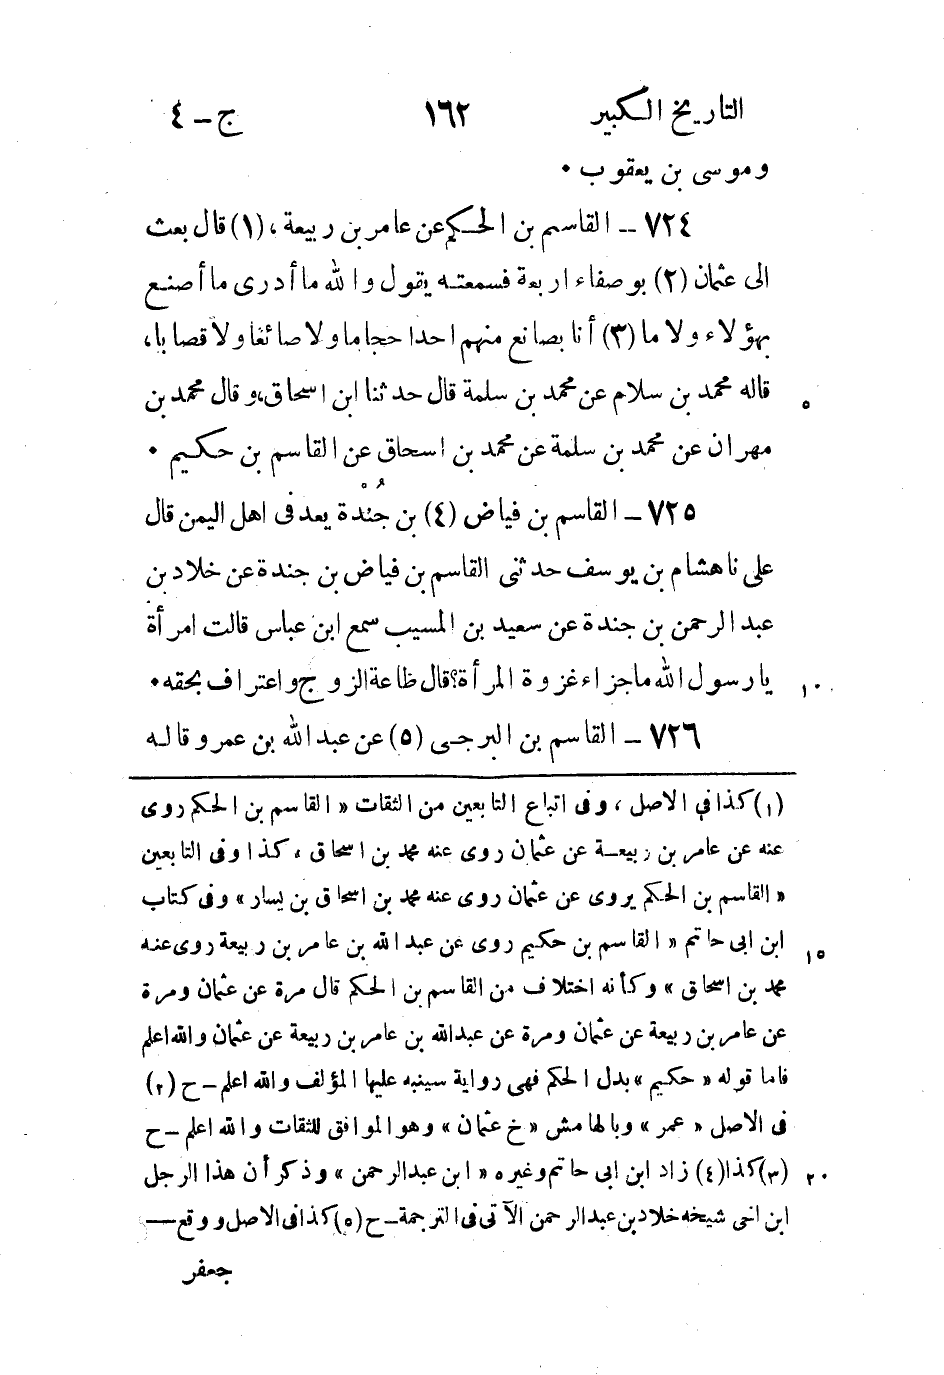 التاريخ الكبير ١٦٢ ج – ٤
وموسى بن يعقوب ٠
٧٢٤ – القاسم بن الحكم عن عامر بن ربيعة ، (١) قال بعث
الى عثمان (٢) بوصفاء اربعة فسمعته يقول والله ما أدرى ما أصنع
بهؤلاء ولا ما (٣) أنا بصانع منهم احدا حجاما ولا صائغا ولا قصابا،
قاله محمد بن سلام عن محمد بن سلمة قال حدثنا ابن اسحاق، وقال محمد بن ٥
مهران عن محمد بن سلمة عن محمد بن اسحاق عن القاسم بن حكيم ٠
٧٢٥ – القاسم بن فياض (٤) بن جُنْدة يعد فى اهل اليمن قال
على نا هشام بن يوسف حدثنى القاسم بن فياض بن جندة عن خلاد بن
عبد الرحمن بن جندة عن سعيد بن المسيب سمع ابن عباس قالت امرأة
يا رسول الله ما جزاء غزوة المرأة؟ قال طاعة الزوج واعتراف بحقه ٠ ١٠
٧٢٦ – القاسم بن البرجى (٥) عن عبد الله بن عمرو قاله
(١) كذا فى الاصل ، وفى اتباع التابعين من الثقات « القاسم بن الحكم روى
عنه عن عامر بن ربيعة عن عثمان روى عنه محمد بن اسحاق ، كذا وفى التابعين
« القاسم بن الحكم يروى عن عثمان روى عنه محمد بن اسحاق بن يسار » وفى كتاب
ابن ابى حاتم « القاسم بن حكيم روى عن عبد الله بن عامر بن ربيعة روى عنه ١٥
محمد بن اسحاق » وكأنه اختلاف من القاسم بن الحكم قال مرة عن عثمان ومرة
عن عامر بن ربيعة عن عثمان ومرة عن عبدالله بن عامر بن ربيعة عن عثمان والله اعلم
فاما قوله « حكيم » بدل الحكم فهى رواية سينبه عليها المؤلف والله اعلم – ح (٢)
فى الاصل « عمر » وبالهامش « خ عثمان » وهو الموافق للثقات والله اعلم – ح
(٣) كذا (٤) زاد ابن ابى حاتم وغيره « ابن عبد الرحمن » وذكر أن هذا الرجل ٢٠
ابن اخى شيخه خلاد بن عبد الرحمن الآتى فى الترجمة – ح (٥) كذا فى الاصل ووقع —
جعفر